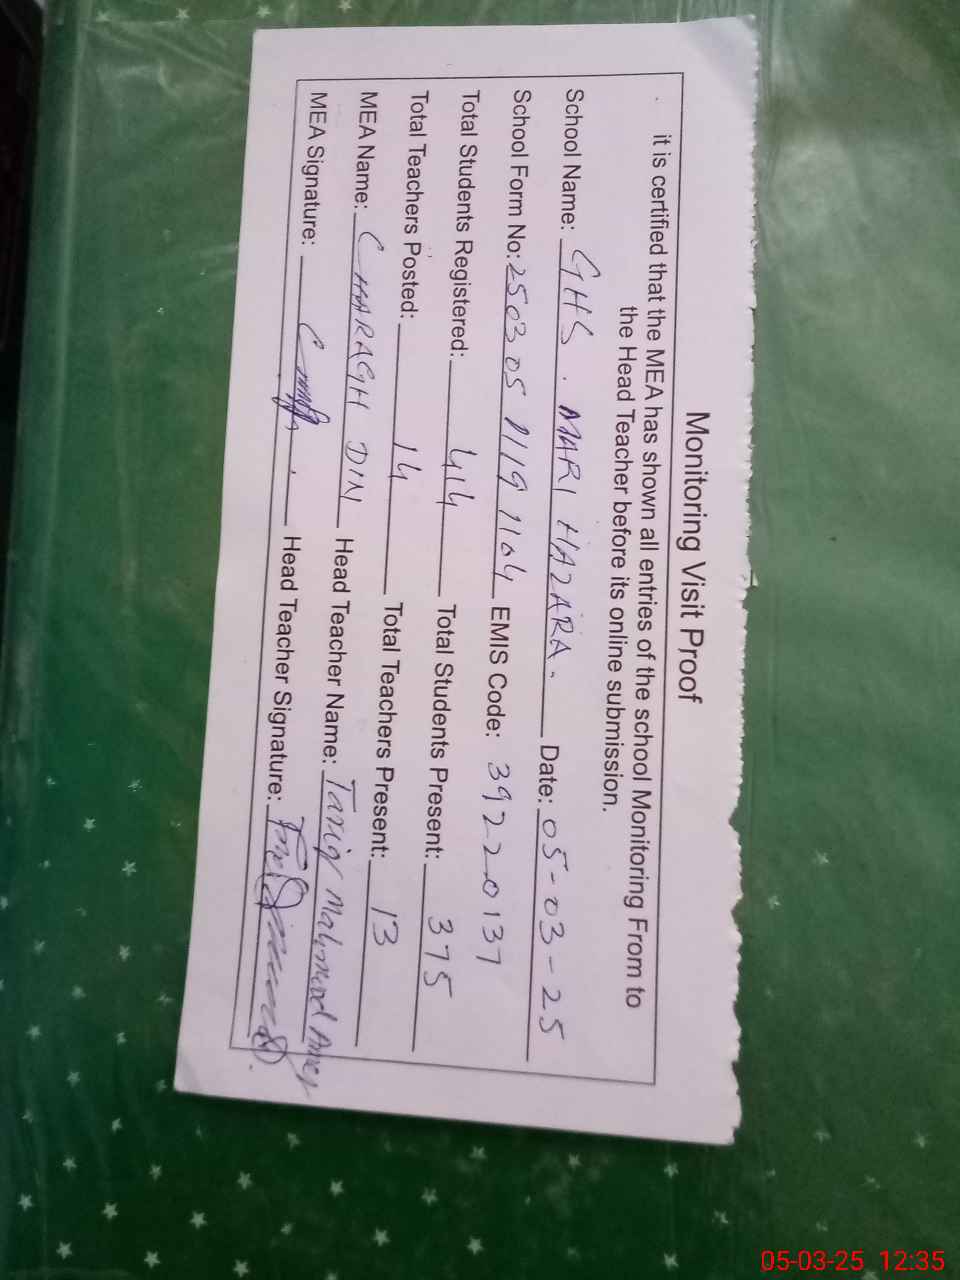 Monitoring Visit Proof
it is certified that the MEA has shown all entries of the school Monitoring From to
the Head Teacher before its online submission.
School Name: GHS. MARI HAZARA. Date: 05-03-25
School Form No: 25030511191104 EMIS Code: 39220137
Total Students Registered: 414 Total Students Present: 375
Total Teachers Posted: 14 Total Teachers Present: 13
MEA Name: CHARAGH DIN Head Teacher Name: Tariq Mahmood
MEA Signature: Head Teacher Signature:
05-03-25 12:35